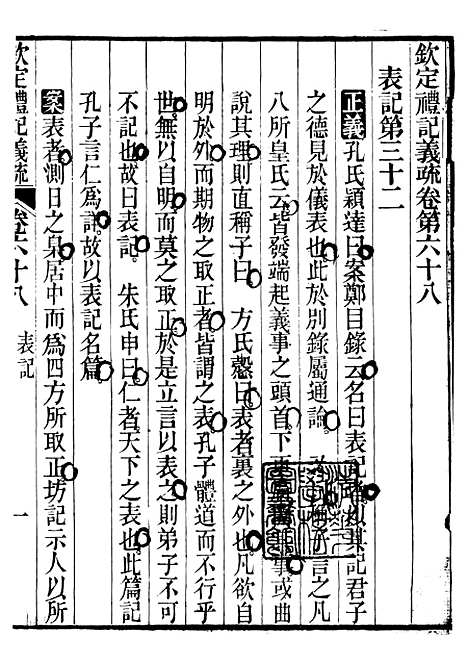 欽定禮記義疏卷第六十八
表記第三十二
正義孔氏穎達曰案鄭目錄云名曰表記者以其記君子
之德見於儀表也此於別錄屬通論 言之凡
八所皇氏云皆發端起義事之頭首下 事或曲
說其理則直稱子曰 方氏慤曰表者裏之外也凡欲自
明於外而期物之取正者皆謂之表孔子體道而不行乎
世無以自明而莫之取正於是立言以表之則弟子不可
不記也故曰表記 朱氏申曰仁者天下之表也此篇記
孔子言仁爲詳故以表記名篇
案表者測日之臬居中而爲四方所取正坊記示人以所
欽定禮記義疏 卷六十八 表記 一